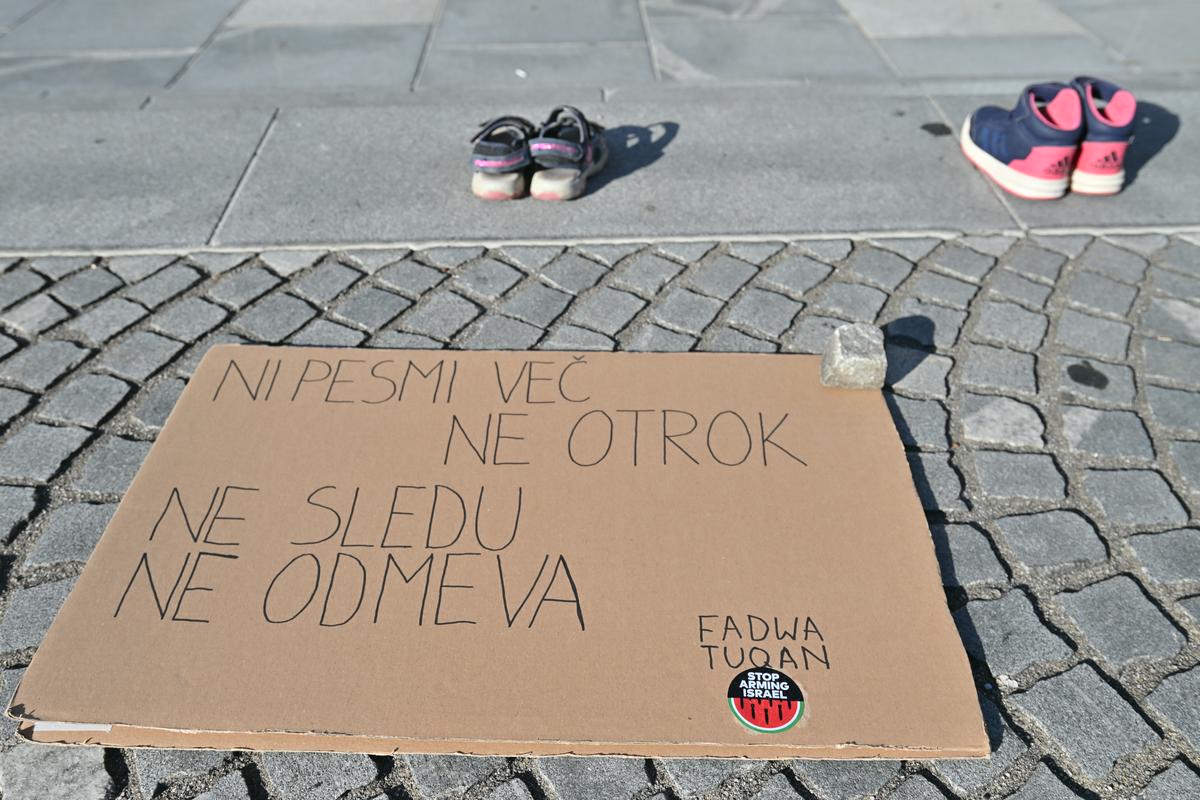 NI PESMI VEČ
NE OTROK
NE SLEDU
NE ODMEVA
FADWA
TUQAN
STOP
ARMING
ISRAEL